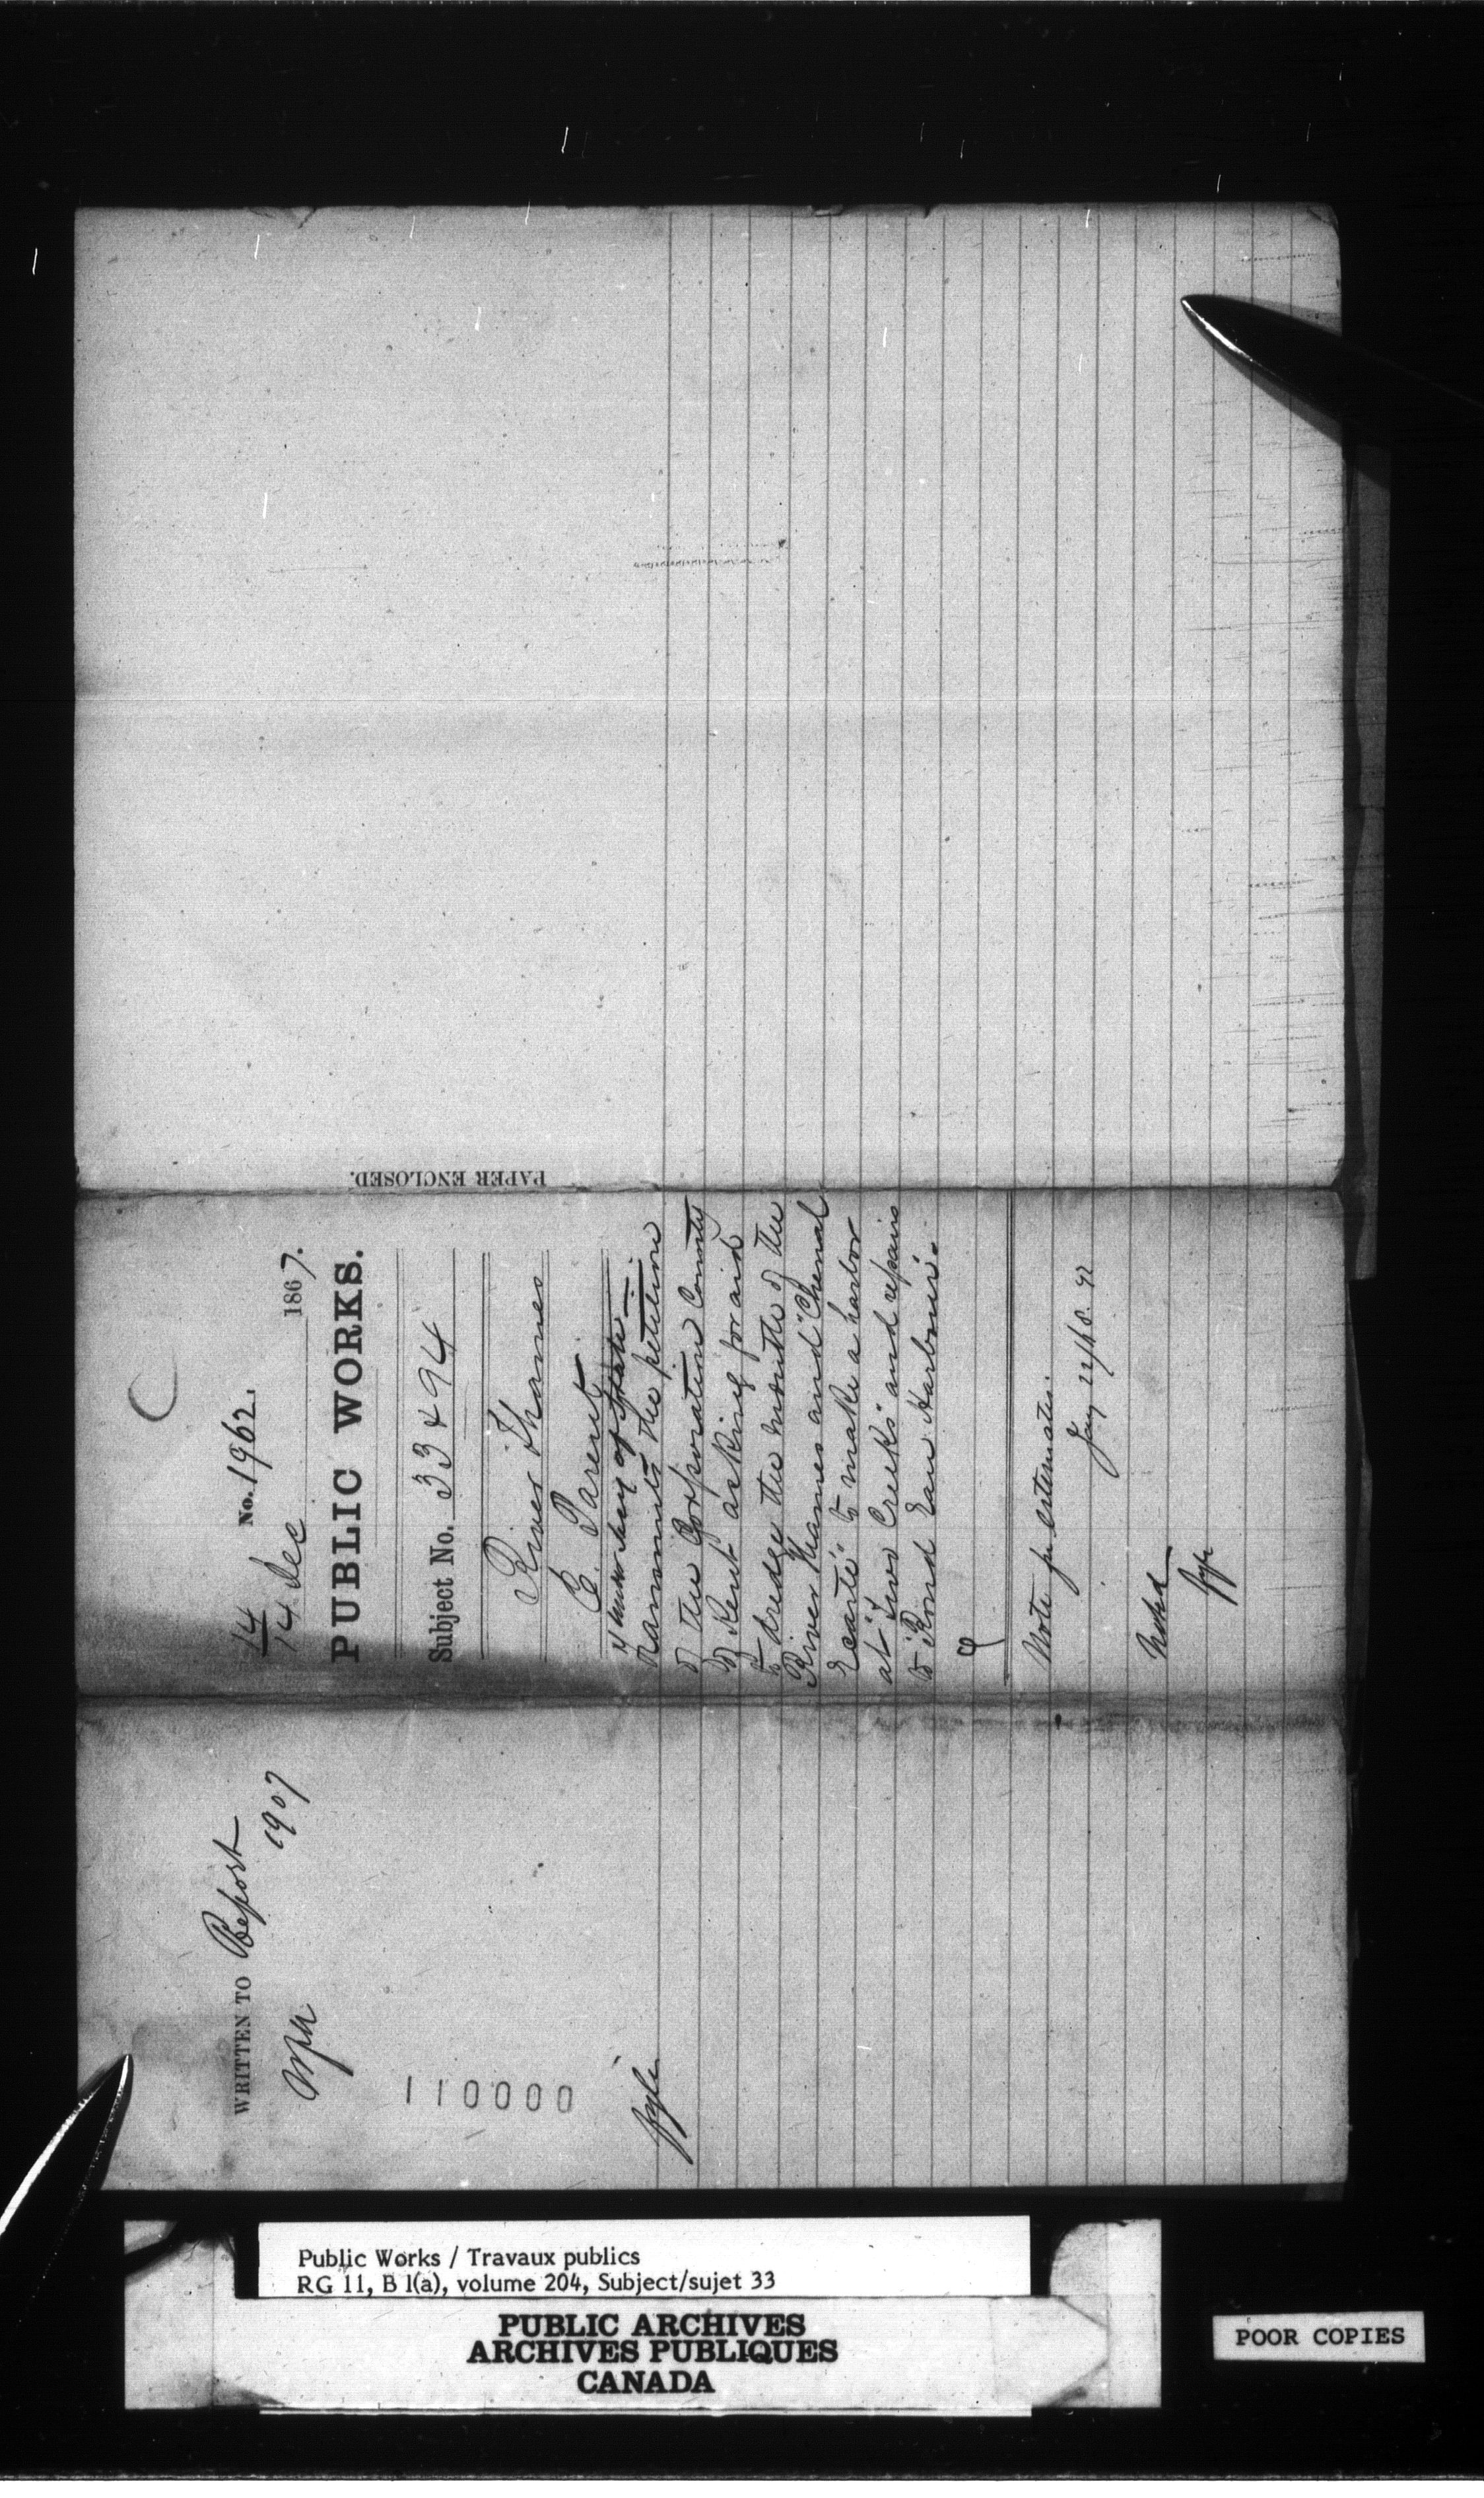 No. 1962.
14
14 Dec 1867.
PUBLIC WORKS.
Subject No. 33 & 94
River Thames
E. Parent
Under Secy of State
Transmits the petition
of the Corporation County
of Kent asking for aid
to dredge the mouth of the
River Thames and "Chenal
Ecarté" to make a harbor
at "Two Creeks" and repairs
to "Rond Eau Harbour".
Note for estimates.
Noted
PAPER ENCLOSED.
WRITTEN TO Report
1907
110000
fyle
Public Works / Travaux publics
RG 11, B 1(a), volume 204, Subject/sujet 33
PUBLIC ARCHIVES
ARCHIVES PUBLIQUES
CANADA
POOR COPIES